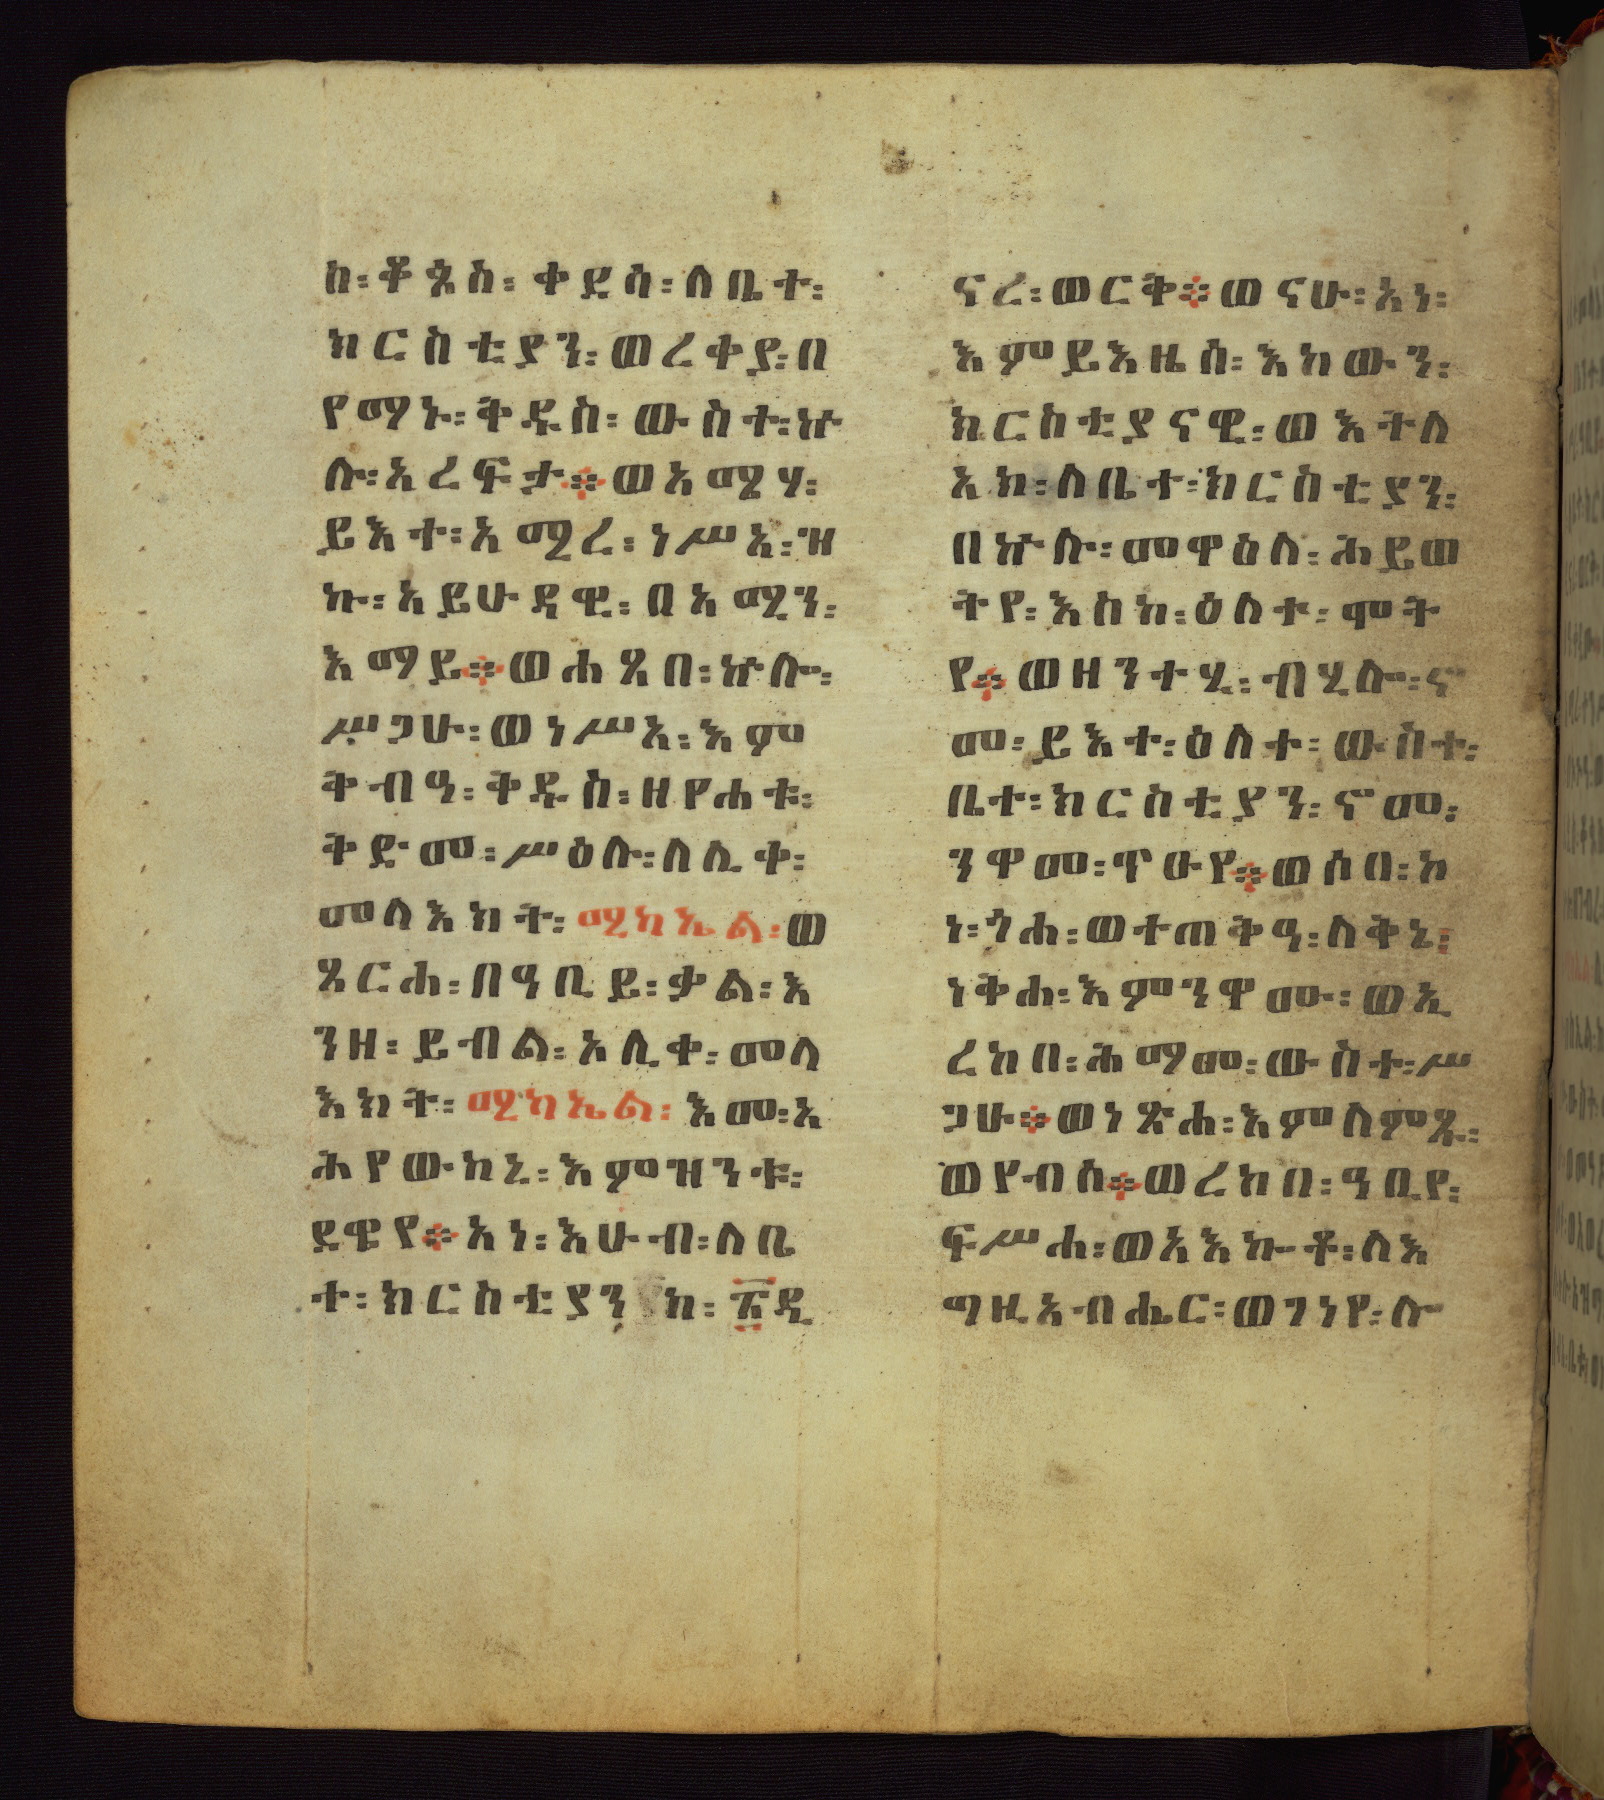 ከ፡ ቆጶስ፡ ቀደሳ፡ ለቤተ፡
ክርስቲያን፡ ወረቀያ፡ በ
የማኑ፡ ቅዱስ፡ ውስተ፡ ኵ
ሉ፡ አረፍታ፨ ወአሜሃ፡
ይእተ፡ አሚረ፡ ነሥአ፡ ዝ
ኩ፡ አይሁዳዊ፡ በአሚን፡
እማይ፨ ወሐጸበ፡ ኵሎ፡
ሥጋሁ፡ ወነሥአ፡ እም
ቅብዓ፡ ቅዱስ፡ ዘየሐቱ፡
ቅድመ፡ ሥዕሉ፡ ለሊቀ፡
መላእክት፡ ሚካኤል፡ ወ
ጸርሐ፡ በዓቢይ፡ ቃል፡ እ
ንዘ፡ ይብል፡ አሊቀ፡ መላ
እክት፡ ሚካኤል፡ እመ፡ አ
ሕየውከኒ፡ እምዝንቱ፡
ደዌየ፨ አነ፡ እሁብ፡ ለቤ
ተ፡ ክርስቲያን ከ፡ ፻ዲ
ናረ፡ ወርቅ፨ ወናሁ፡ አነ፡
እምይእዜሰ፡ እከውን፡
ክርስቲያናዊ፡ ወእትለ
አክ፡ ለቤተ፡ ክርስቲያን፡
በኵሉ፡ መዋዕለ፡ ሕይወ
ትየ፡ እስከ፡ ዕለተ፡ ሞት
የ፨ ወዘንተ፡ ሂ፡ ብሂሎ፡ ኖ
መ፡ ይእተ፡ ዕለተ፡ ውስተ፡
ቤተ፡ ክርስቲያን፡ ኖመ፡
ንዋመ፡ ጥዑየ፨ ወሶበ፡ ኮ
ነ፡ ጎሐ፡ ወተጠቅዓ፡ ለቅኔ፡
ነቅሐ፡ እምንዋሙ፡ ወኢ
ረከበ፡ ሕማመ፡ ውስተ፡ ሥ
ጋሁ፨ ወነጽሐ፡ እምለምጹ፡
ወየብሰ፨ ወረከበ፡ ዓቢየ፡
ፍሥሐ፡ ወአእኰቶ፡ ለእ
ግዚአብሔር፡ ወገነየ፡ ሎ